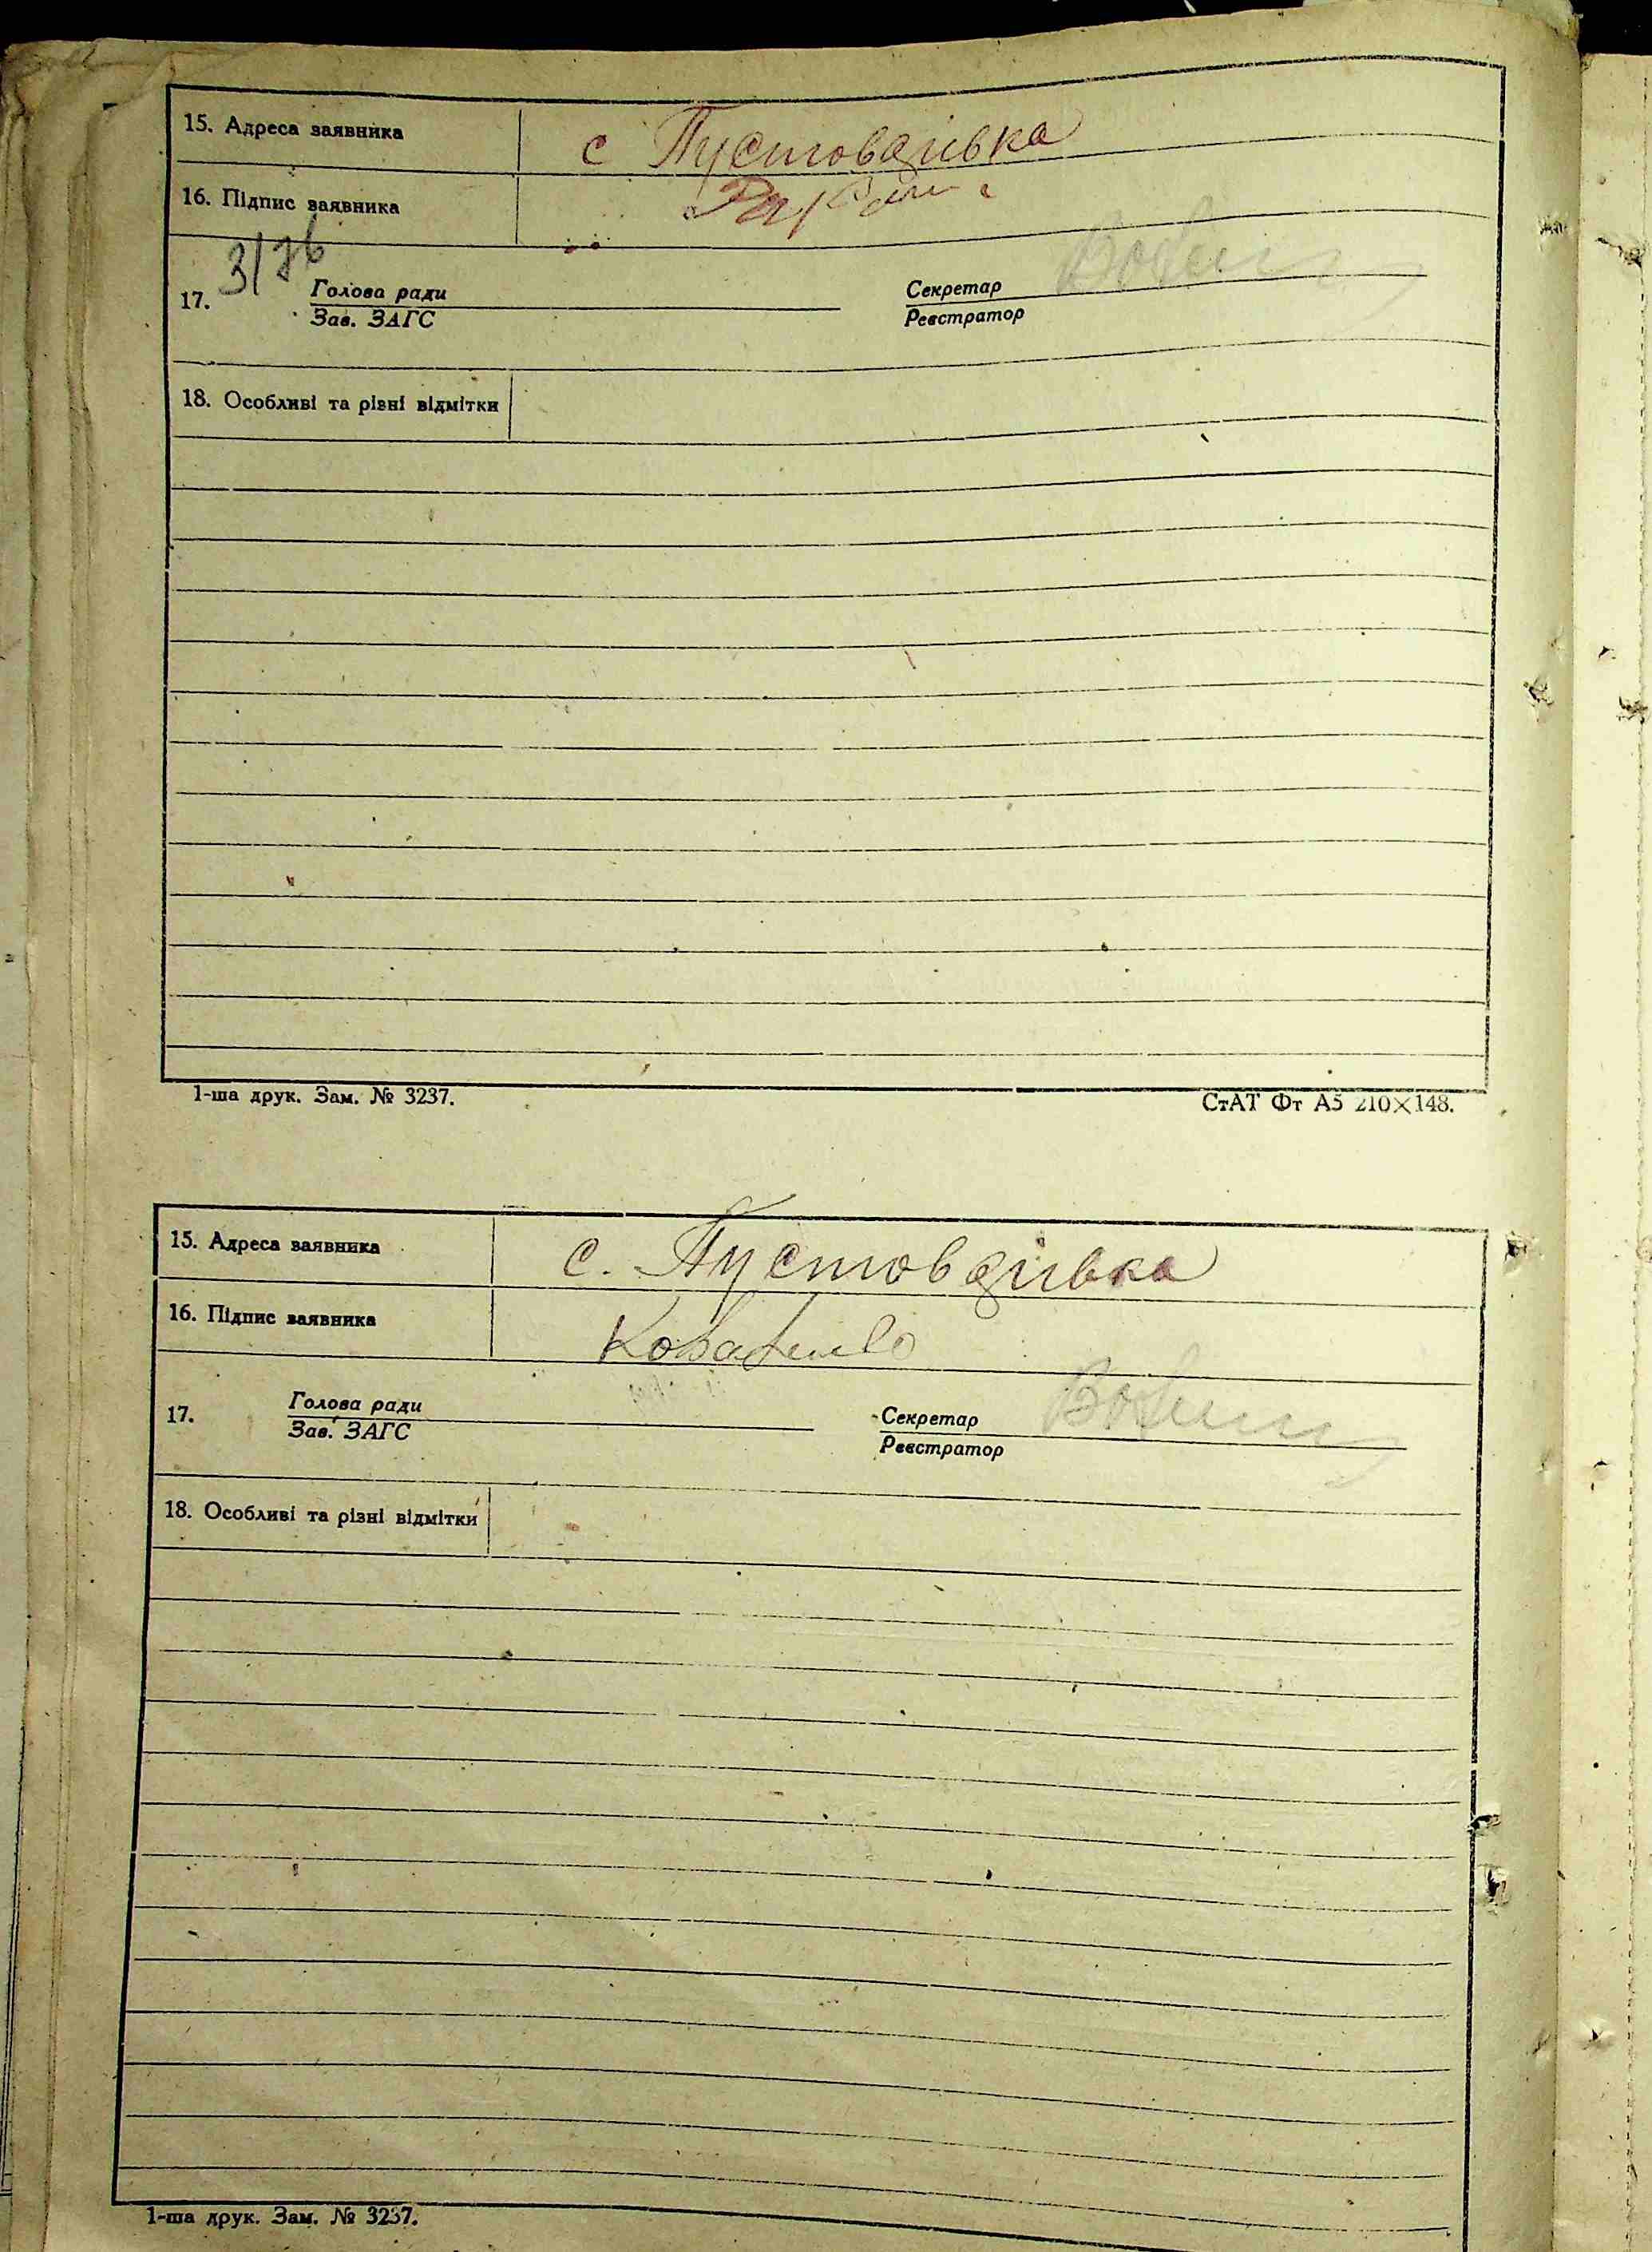 15. Адреса заявника с Пустовдівка
16. Підпис заявника
17. Голова ради Секретар
Зав. ЗАГС Реєстратор
18. Особливі та різні відмітки
1-ша друк. Зам. № 3237. СтАТ Фт А5 210×148.
15. Адреса заявника с. Пустовдівка
16. Підпис заявника
17. Голова ради Секретар
Зав. ЗАГС Реєстратор
18. Особливі та різні відмітки
1-ша друк. Зам. № 3237.